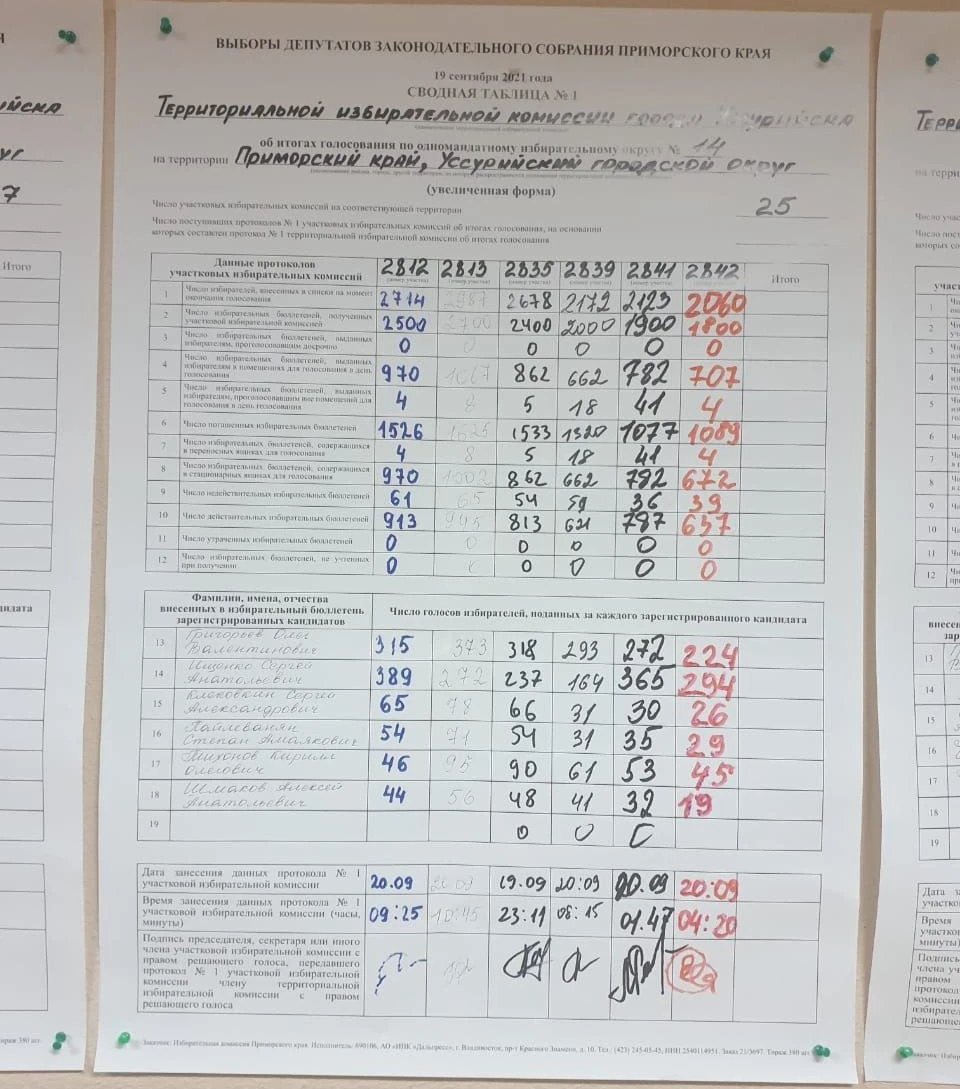 ВЫБОРЫ ДЕПУТАТОВ ЗАКОНОДАТЕЛЬНОГО СОБРАНИЯ ПРИМОРСКОГО КРАЯ
19 сентября 2021 года
СВОДНАЯ ТАБЛИЦА № 1
Территориальной избирательной комиссии города Уссурийска
об итогах голосования по одномандатному избирательному округу № 14
на территории Приморский край, Уссурийский городской округ
(увеличенная форма)
Число участковых избирательных комиссий на соответствующей территории 25
Число поступивших протоколов № 1 участковых избирательных комиссий об итогах голосования, на основании
которых составлен протокол № 1 территориальной избирательной комиссии об итогах голосования
Данные протоколов участковых избирательных комиссий 2812 2813 2835 2839 2841 2842 Итого
1 Число избирателей, внесенных в списки на момент окончания голосования 2714 2987 2678 2172 2123 2060
2 Число избирательных бюллетеней, полученных участковой избирательной комиссией 2500 2700 2400 2000 1900 1800
3 Число избирательных бюллетеней, выданных избирателям, проголосовавшим досрочно 0 0 0 0 0 0
4 Число избирательных бюллетеней, выданных избирателям в помещениях для голосования в день голосования 970 1067 862 662 782 707
5 Число избирательных бюллетеней, выданных избирателям, проголосовавшим вне помещений для голосования в день голосования 4 8 5 18 41 4
6 Число погашенных избирательных бюллетеней 1526 1625 1533 1320 1077 1089
7 Число избирательных бюллетеней, содержащихся в переносных ящиках для голосования 4 8 5 18 41 4
8 Число избирательных бюллетеней, содержащихся в стационарных ящиках для голосования 970 1002 862 662 782 672
9 Число недействительных избирательных бюллетеней 61 65 54 59 36 39
10 Число действительных избирательных бюллетеней 913 945 813 621 787 637
11 Число утраченных избирательных бюллетеней 0 0 0 0 0 0
12 Число избирательных бюллетеней, не учтенных при получении 0 0 0 0 0
Фамилии, имена, отчества внесенных в избирательный бюллетень зарегистрированных кандидатов Число голосов избирателей, поданных за каждого зарегистрированного кандидата
13 Григорьев Олег Валентинович 315 373 318 293 272 224
14 Ищенко Сергей Анатольевич 389 272 237 164 365 294
15 Клековкин Сергей Александрович 65 78 66 31 30 26
16 Пайлеванян Степан Амаякович 54 71 54 31 35 29
17 Тихонов Кирилл Олегович 46 95 90 61 53 45
18 Шмаков Алексей Анатольевич 44 56 48 41 32 19
19 0 0
Дата занесения данных протокола № 1 участковой избирательной комиссии 20.09 20.09 19.09 20:09 20.09 20:09
Время занесения данных протокола № 1 участковой избирательной комиссии (часы, минуты) 09:25 10:45 23:11 08:15 01.47 04:20
Подпись председателя, секретаря или иного члена участковой избирательной комиссии с правом решающего голоса, передавшего протокол № 1 участковой избирательной комиссии члену территориальной избирательной комиссии с правом решающего голоса
Заказчик: Избирательная комиссия Приморского края. Исполнитель: 690106, АО «ИПК «Дальпресс», г. Владивосток, пр-т Красного Знамени, д. 10. Тел.: (423) 245-05-45, ИНН 2540114951. Заказ 21/3697. Тираж 380 шт.